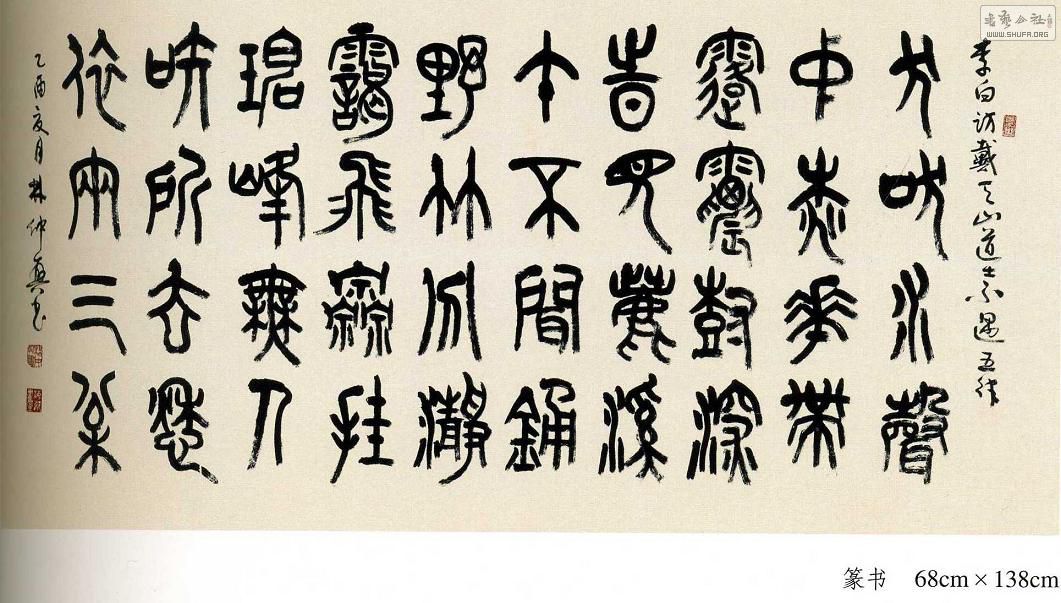 書藝公社
WWW.SHUFA.ORG
李白訪戴天山道士不遇五律
犬吠水聲
中桃華帶
露濃樹深
時見鹿溪
午不聞銿
野竹分青
靄飛泉挂
碧峰無人
知所去愁
倚兩三松
乙酉夏月 林仲興書
篆书 68cm × 138cm